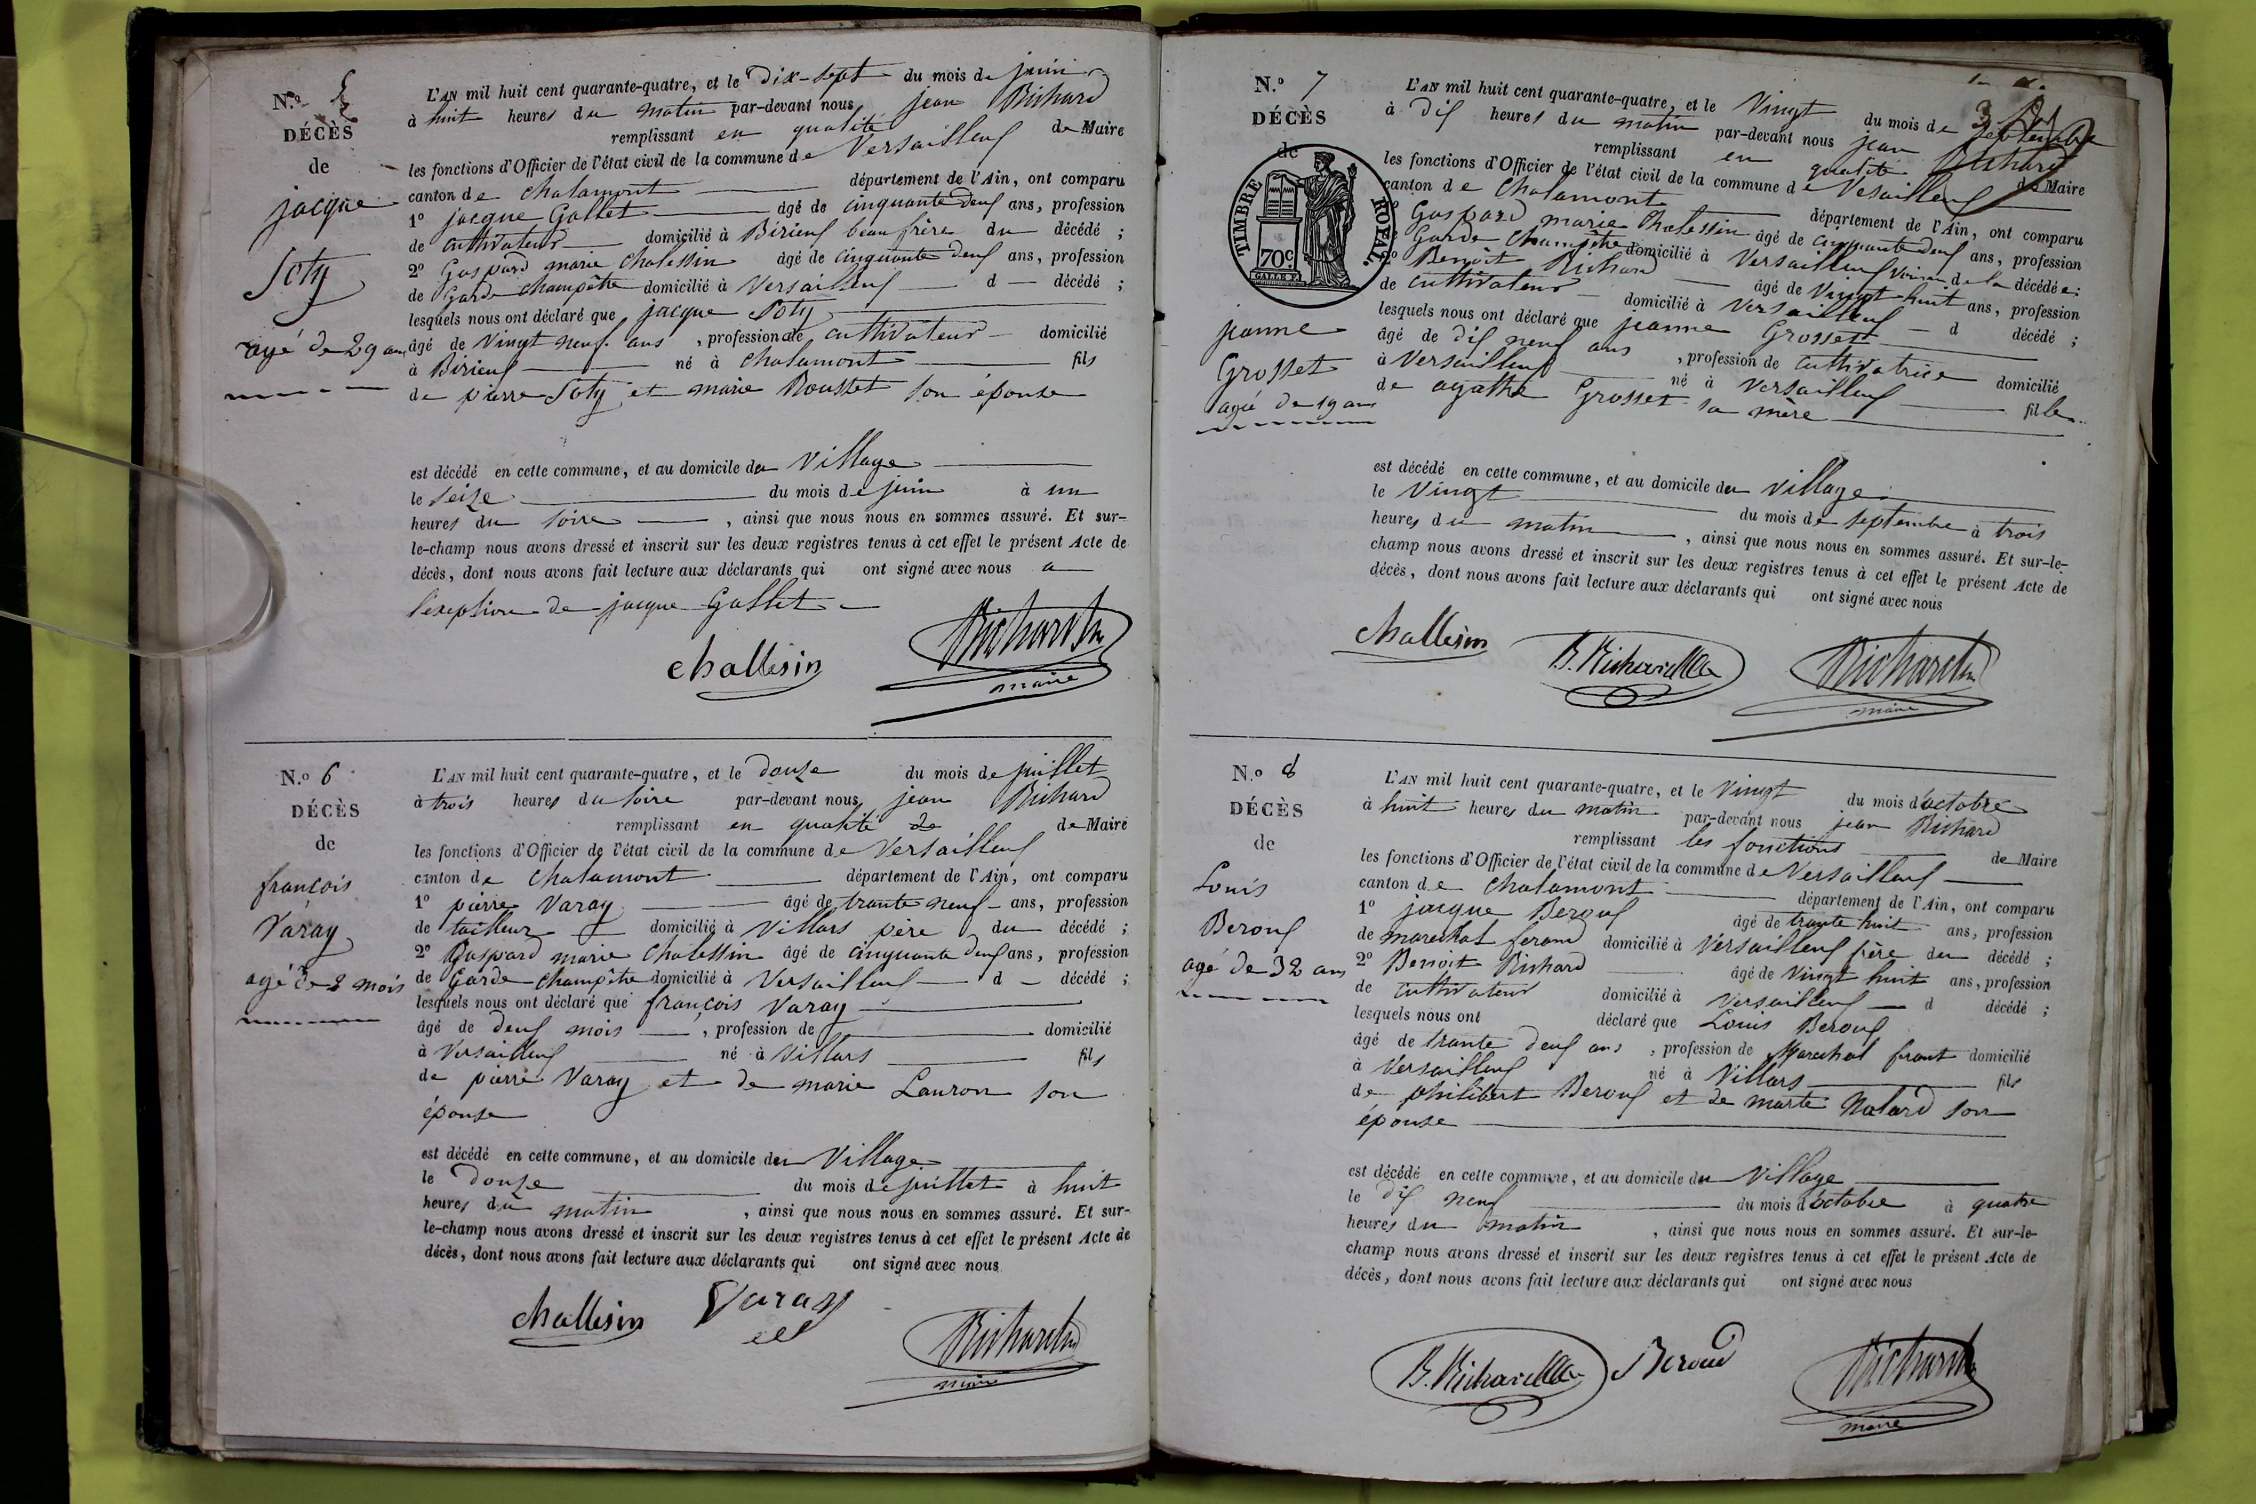 N.º 5
DÉCÈS
de
jacque
Soty
agé de 29 ans
L'AN mil huit cent quarante-quatre, et le Dix-Sept du mois de juin
à huit heures du matin par-devant nous jean Richard
remplissant en qualité de Maire
les fonctions d'Officier de l'état civil de la commune de Versailleuf
canton de Chalamont département de l'Ain, ont comparu
1º jacque Gallet âgé de cinquante deuf ans, profession
de cultivateur domicilié à Bérieuf beau frère du décédé ;
2º Gaspard marie Chalessin âgé de cinquante deuf ans, profession
de Garde champêtre domicilié à Versailleuf d décédé ;
lesquels nous ont déclaré que jacque Soty
âgé de vingt neuf ans , profession de cultivateur domicilié
à Bérieuf né à Chalamont fils
de pierre Soty et marie Rousset son épouse
est décédé en cette commune, et au domicile du Village
le seize du mois de juin à un
heures du soire , ainsi que nous nous en sommes assuré. Et sur-
le-champ nous avons dressé et inscrit sur les deux registres tenus à cet effet le présent Acte de
décès, dont nous avons fait lecture aux déclarants qui ont signé avec nous a
l'exeption de jacque Gallet
challesin Richard maire
N.º 6
DÉCÈS
de
françois
Varay
agé de 2 mois
L'AN mil huit cent quarante-quatre, et le douze du mois de juillet
à trois heures du soire par-devant nous jean Richard
remplissant en qualité de de Maire
les fonctions d'Officier de l'état civil de la commune de Versailleuf
canton de Chalamont département de l'Ain, ont comparu
1º pierre Varay âgé de trante neuf ans, profession
de tailleur domicilié à Villars père du décédé ;
2º Gaspard marie Chalessin âgé de cinquante deuf ans, profession
de Garde champête domicilié à Versailleuf d décédé ;
lesquels nous ont déclaré que françois Varay
âgé de deuf mois , profession de domicilié
à Versailleuf né à Villars fils
de pierre Varay et de marie Lauron son
épouse
est décédé en cette commune, et au domicile du Village
le Douze du mois de juillet à huit
heures du matin , ainsi que nous nous en sommes assuré. Et sur-
le-champ nous avons dressé et inscrit sur les deux registres tenus à cet effet le présent Acte de
décès, dont nous avons fait lecture aux déclarants qui ont signé avec nous
challesin Varay Richard maire
N.º 7
DÉCÈS
de
TIMBRE ROYAL.
70c
jeanne
Grosset
agé de 19 ans
L'AN mil huit cent quarante-quatre, et le Vingt du mois de septembre
à dif heures du matin par-devant nous jean Richard
remplissant en qualité de Maire
les fonctions d'Officier de l'état civil de la commune de Versailleuf
canton de Chalamont département de l'Ain, ont comparu
1º Gaspard marie Chalessin âgé de cinquante deuf ans, profession
Garde champêtre domicilié à Versailleuf voisin de la décédée ;
2º Benoit Richard âgé de Vingt huit ans, profession
de cultivateur domicilié à Versailleuf d décédé ;
lesquels nous ont déclaré que jeanne Grosset
âgé de dif neuf ans , profession de cultivatrice domicilié
à Versailleuf né à Versailleuf fille
de agathe Grosset sa mère
est décédé en cette commune, et au domicile du village
le Vingt du mois de septembre à trois
heures du matin , ainsi que nous nous en sommes assuré. Et sur-le-
champ nous avons dressé et inscrit sur les deux registres tenus à cet effet le présent Acte de
décès, dont nous avons fait lecture aux déclarants qui ont signé avec nous
challesin B. Richard Richard maire
N.º 8
DÉCÈS
de
Louis
Berouf
agé de 32 ans
L'AN mil huit cent quarante-quatre, et le Vingt du mois d'octobre
à huit heures du matin par-devant nous jean Richard
remplissant les fonctions de Maire
les fonctions d'Officier de l'état civil de la commune de Versailleuf
canton de Chalamont département de l'Ain, ont comparu
1º jacque Berouf âgé de trante huit ans, profession
de marechal ferand domicilié à Versailleuf frère du décédé ;
2º Benoit Richard âgé de vingt huit ans, profession
de cultivateur domicilié à Versailleuf d décédé ;
lesquels nous ont déclaré que Louis Berouf
âgé de trante deuf ans , profession de Marechal frant domicilié
à Versailleuf né à Villars fils
de philibert Berouf et de marte Nalard son
épouse
est décédé en cette commune, et au domicile du village
le dif neuf du mois d'octobre à quatre
heures du matin , ainsi que nous nous en sommes assuré. Et sur-le-
champ nous avons dressé et inscrit sur les deux registres tenus à cet effet le présent Acte de
décès, dont nous avons fait lecture aux déclarants qui ont signé avec nous
B. Richard Beroud Richard maire